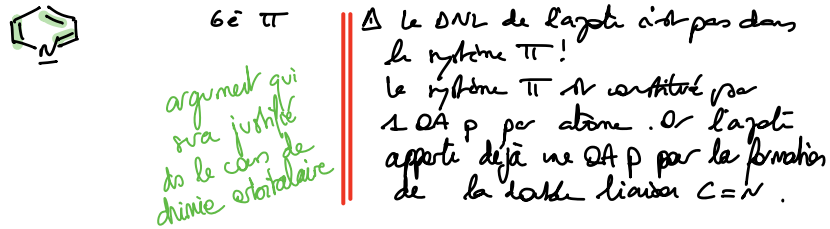 6é π
N
argument qui
sera justifié
ds le cours de
chimie orbitalaire
⚠ Le DNL de l'azote n'est pas dans
le système π !
Le système π est constitué par
1 OA p par atome. Or l'azote
apporte déjà une OA p pour la formation
de la double liaison C=N.